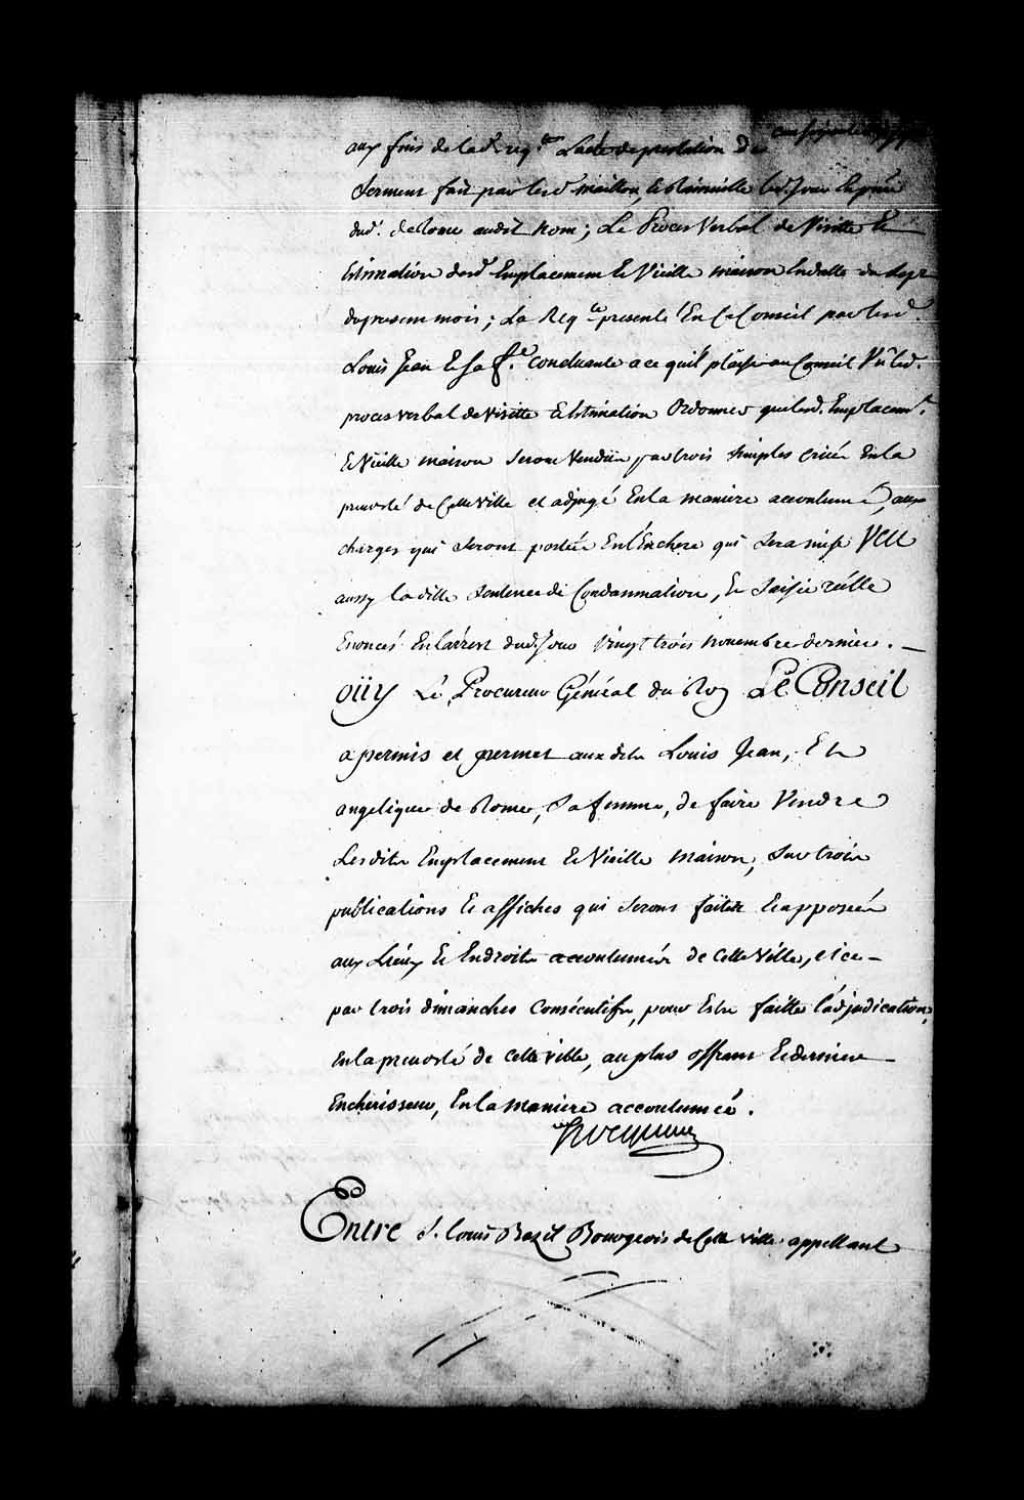 aux fins de lad. req.te Lacte de prestation de
Serment fait par lesd maillou, et Rainville led. Jour
dud. de Rome audit nom; Le Proces Verbal de Visitte Et
Estimation desd Emplacement Et Vieille maison En datte du sept
du present mois; La Req.te presentè En Ce Conseil par lesd.
Louis Jean Et sa fe. concluante a ce quil plaise au Conseil Vû led.
proces verbal de visitte et Estimation Ordonner que lesd. Emplacemt.
Et Vieille maison seront Vendus par trois simples criées En la
prevosté de Cette Ville et adjugé En la maniere accoutumé, aux
charges qui seront portées En l'Enchere qui sera mise VEU
aussy la ditte sentence de Condamnation, Et saisie réelle
Enoncés En l'arrest dud. Jour Vingt trois novembre dernier. —
Oüy Le Procureur Général du Roy Le Conseil
a permis et permet aux dits Louis Jean, Et
angelique de Rome, sa femme, de faire Vendre
Lesdits Emplacement Et Vieille maison, sur trois
publications Et affiches qui seront faites Et apposées
aux Lieux Et Endroits accoutumés de cette Ville, et ce —
par trois dimanches consécutifs, pour Estre faitte l'adjudication,
En la prevosté de cette ville, au plus offrant Et dernier —
Encherisseur, En la maniere accoutumée.
hocquart
Entre S. Louis Bazil Bourgeois de Cette Ville appellant